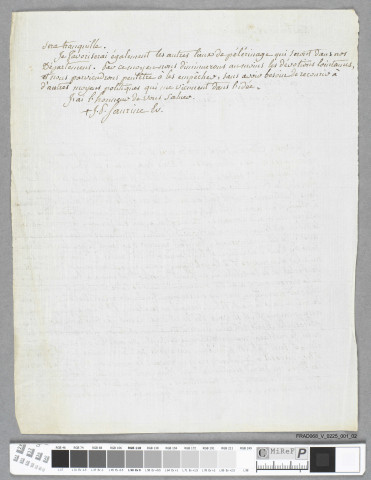 sera tranquille.
Je favoriserai également les autres lieux de pélerinage qui seront dans nos
Département. Par ce moyen nous diminuerons au moins les dévotions lointaines,
et nous parviendrons peutêtre à les empêcher, sans avoir besoin de recourir à
d'autres moyens politiques qui me viennent dans l'idée.
J'ai l'honneur de vous saluer.
+ J. P. Saurine év.
FRAD069_V_0225_001_02
MiReF